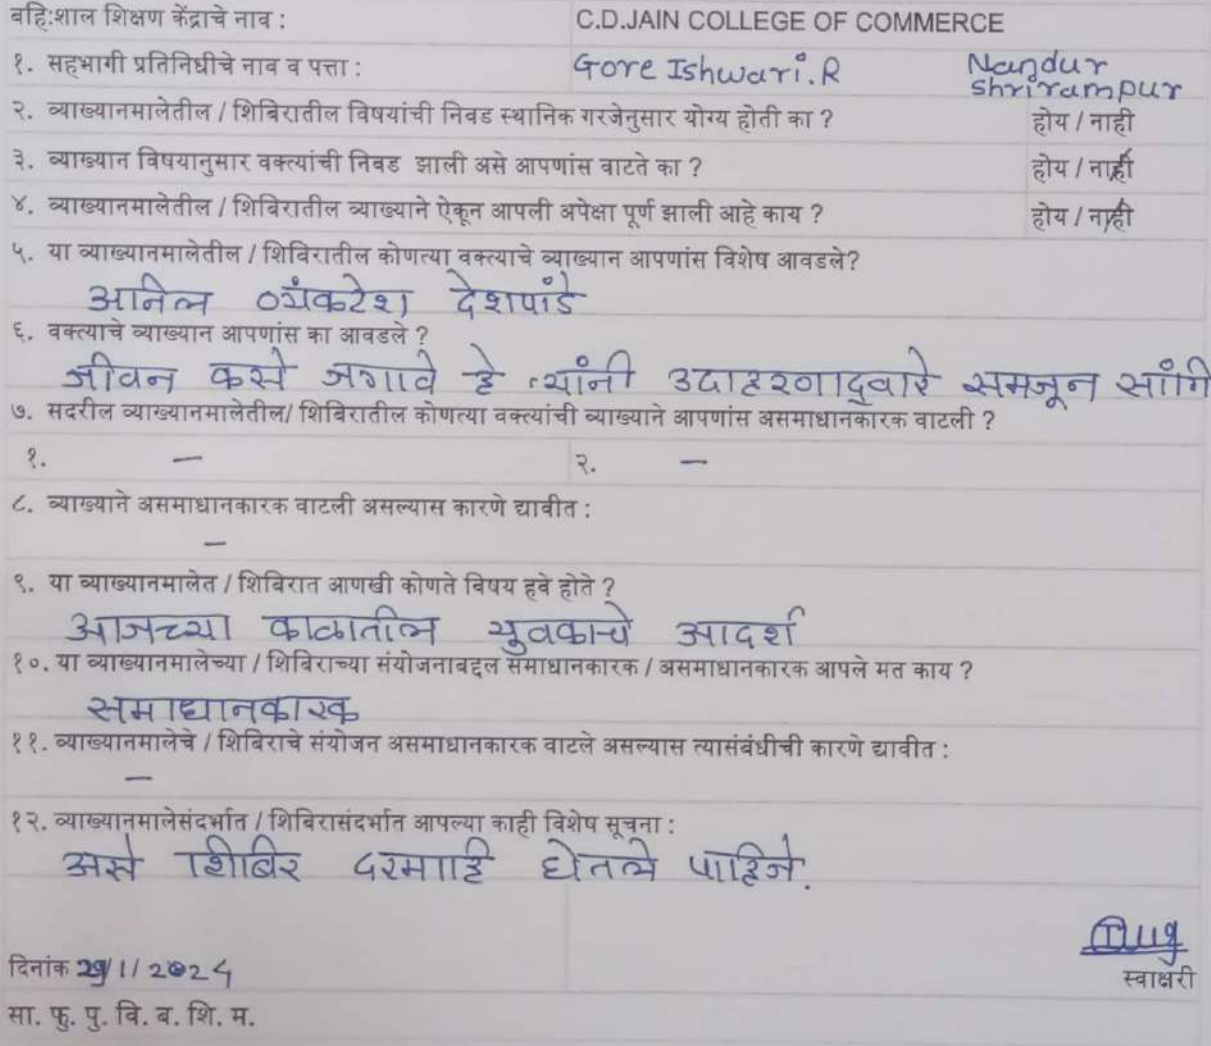 बहि:शाल शिक्षण केंद्राचे नाव : C.D.JAIN COLLEGE OF COMMERCE
१. सहभागी प्रतिनिधीचे नाव व पत्ता : Gore Ishwari.R Nandur
Shrirampur
२. व्याख्यानमालेतील / शिबिरातील विषयांची निवड स्थानिक गरजेनुसार योग्य होती का ? होय / नाही
३. व्याख्यान विषयानुसार वक्त्यांची निवड झाली असे आपणांस वाटते का ? होय / नाही
४. व्याख्यानमालेतील / शिबिरातील व्याख्याने ऐकून आपली अपेक्षा पूर्ण झाली आहे काय ? होय / नाही
५. या व्याख्यानमालेतील / शिबिरातील कोणत्या वक्त्याचे व्याख्यान आपणांस विशेष आवडले?
अनिल व्यंकटेश देशपांडे
६. वक्त्याचे व्याख्यान आपणांस का आवडले ?
जीवन कसे जगावे हे त्यांनी उदाहरणाद्वारे समजून सांगि
७. सदरील व्याख्यानमालेतील/ शिबिरातील कोणत्या वक्त्यांची व्याख्याने आपणांस असमाधानकारक वाटली ?
१. – २. –
८. व्याख्याने असमाधानकारक वाटली असल्यास कारणे द्यावीत :
–
९. या व्याख्यानमालेत / शिबिरात आणखी कोणते विषय हवे होते ?
आजच्या काळातील युवकाचे आदर्श
१०. या व्याख्यानमालेच्या / शिबिराच्या संयोजनाबद्दल समाधानकारक / असमाधानकारक आपले मत काय ?
समाधानकारक
११. व्याख्यानमालेचे / शिबिराचे संयोजन असमाधानकारक वाटले असल्यास त्यासंबंधीची कारणे द्यावीत :
–
१२. व्याख्यानमालेसंदर्भात / शिबिरासंदर्भात आपल्या काही विशेष सूचना :
असे शिबिर दरमाहि घेतले पाहिजे.
दिनांक 29/1/2024
स्वाक्षरी
सा. फु. पु. वि. ब. शि. म.